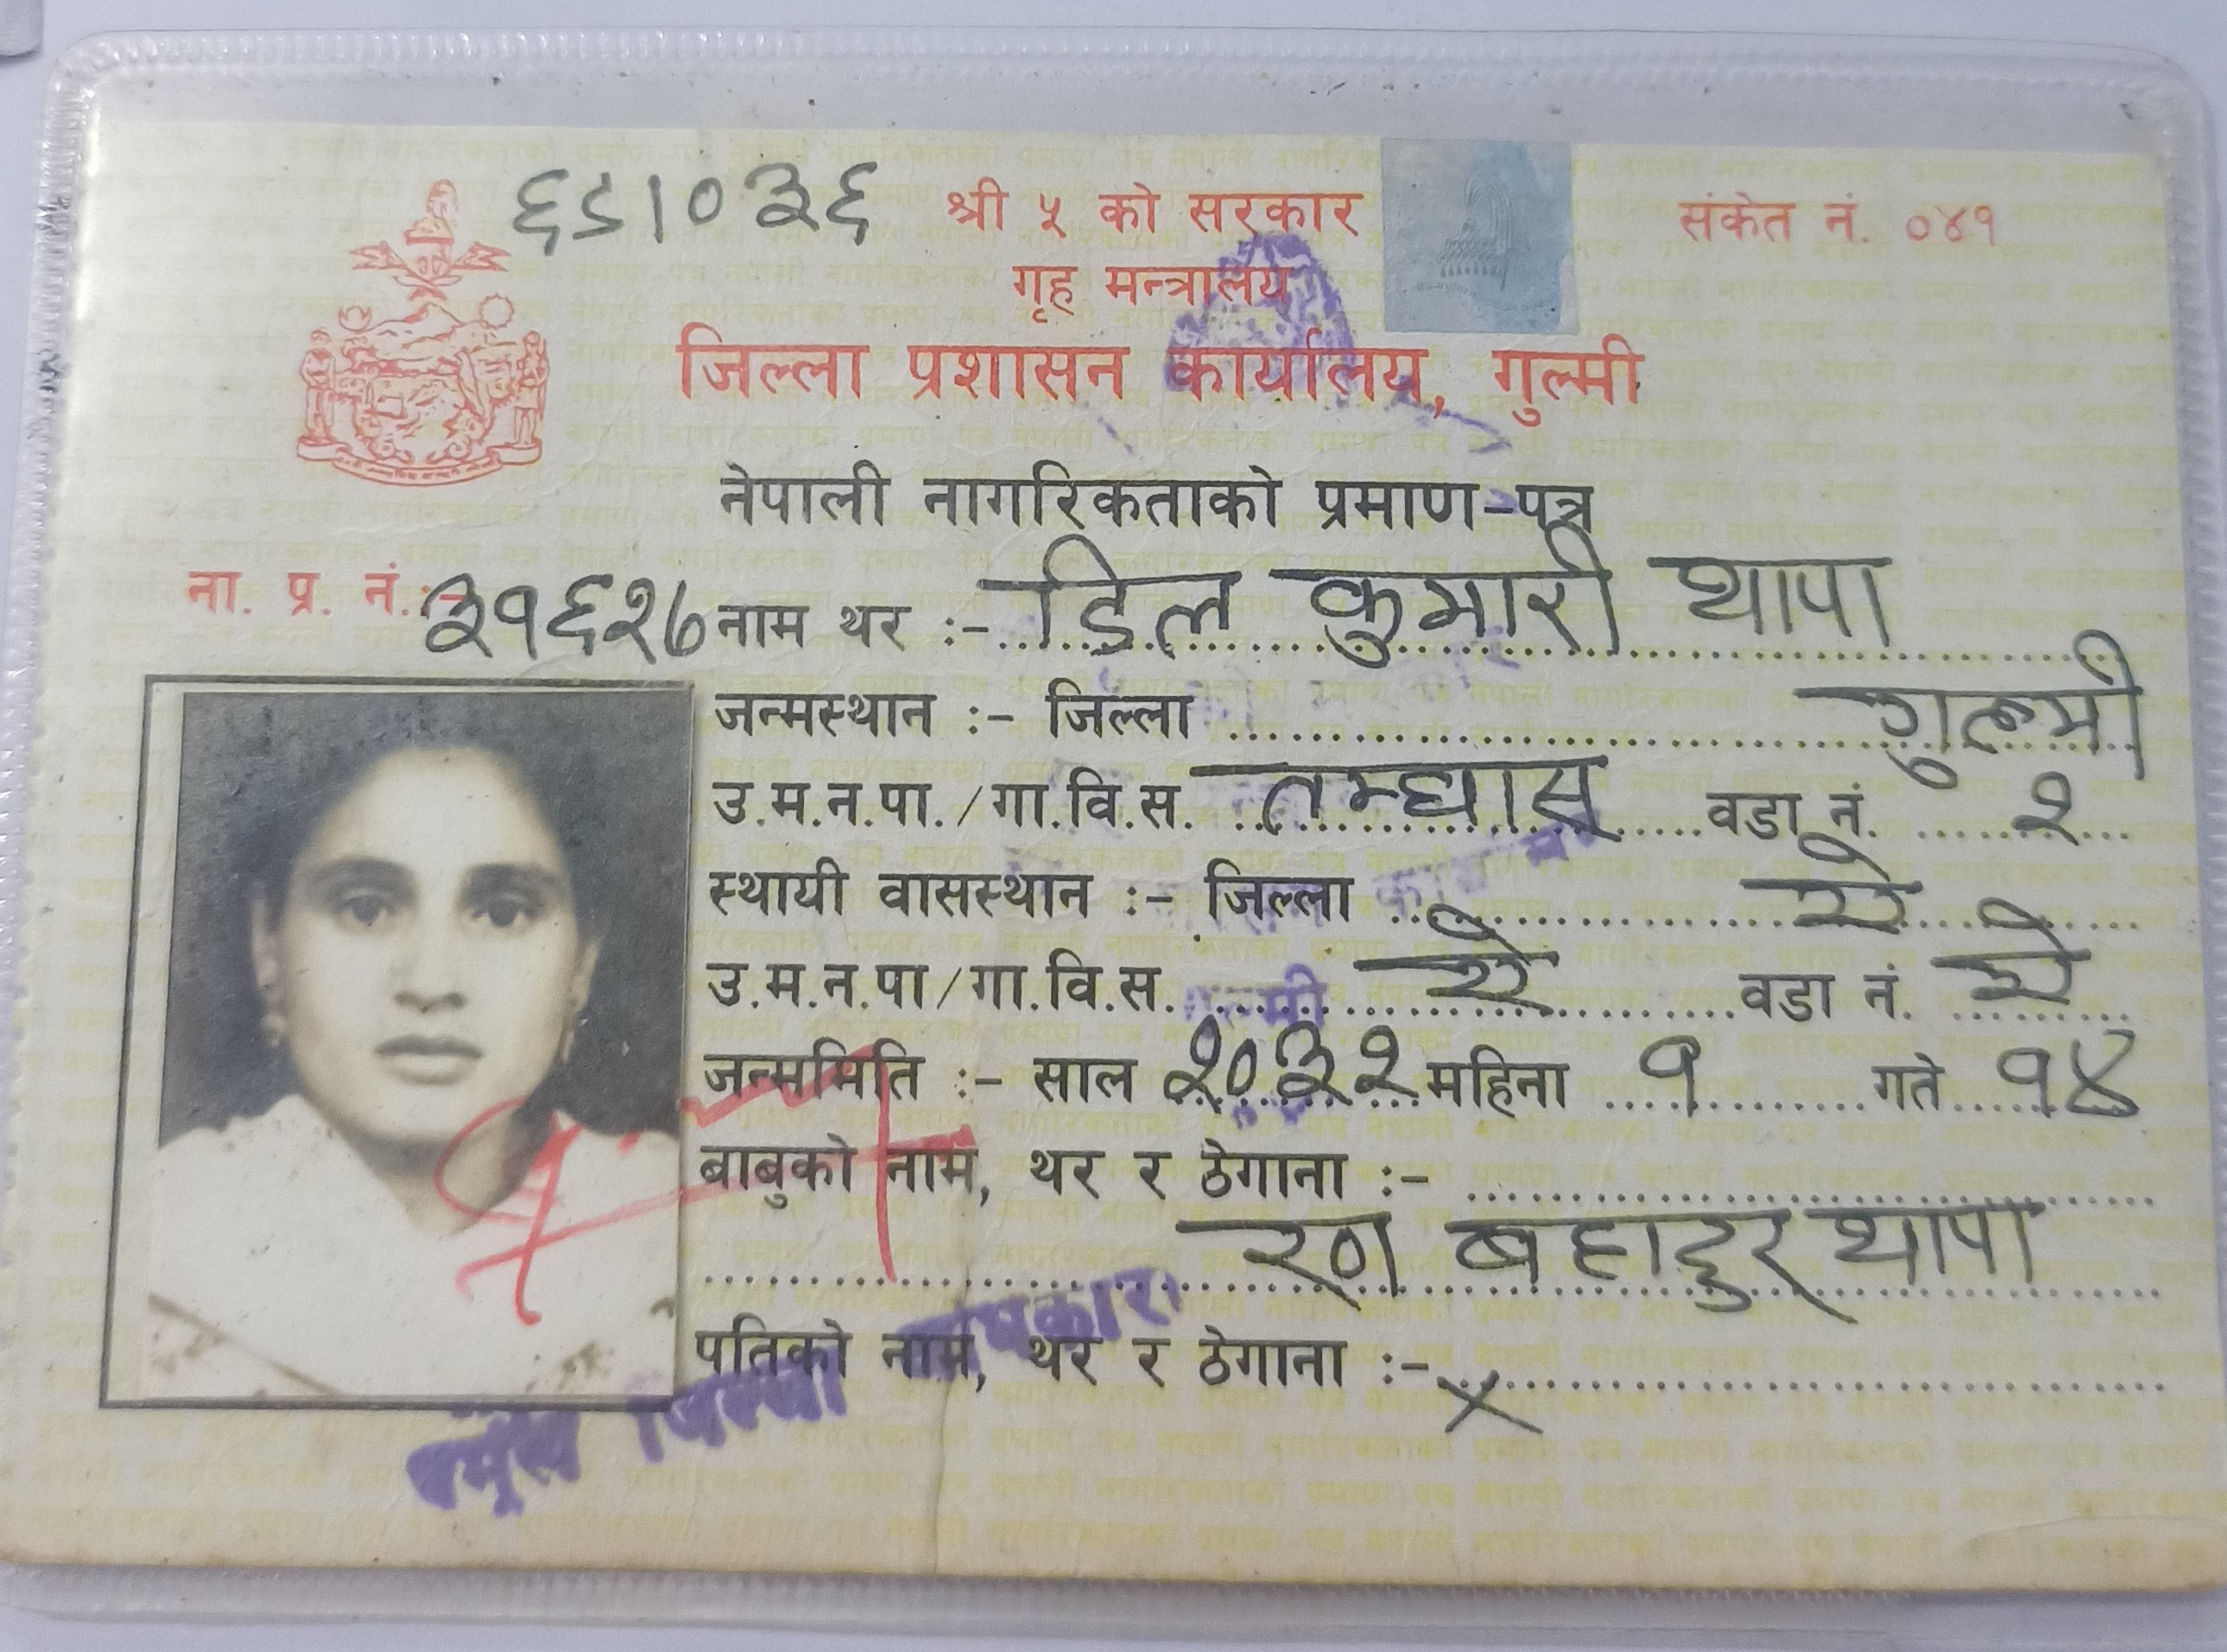 ६८।०३६ श्री ५ को सरकार संकेत नं. ०४१
गृह मन्त्रालय
जिल्ला प्रशासन कार्यालय, गुल्मी
नेपाली नागरिकताको प्रमाण-पत्र
ना. प्र. नं.:- ३१६२७ नाम थर :- डिल कुमारी थापा
जन्मस्थान :- जिल्ला गुल्मी
उ.म.न.पा./गा.वि.स. तम्घास वडा नं. २
स्थायी वासस्थान :- जिल्ला ऐ
उ.म.न.पा/गा.वि.स. ऐ वडा नं. ऐ
जन्ममिति :- साल २०३२ महिना १ गते १४
बाबुको नाम, थर र ठेगाना :-
रण बहादुर थापा
पतिको नाम, थर र ठेगाना :- x
प्रमुख जिल्ला अधिकारी